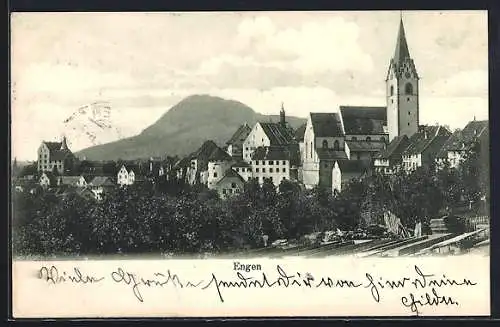 Engen
Viele Grüße sendet Dir von hier Deine
Hilde.